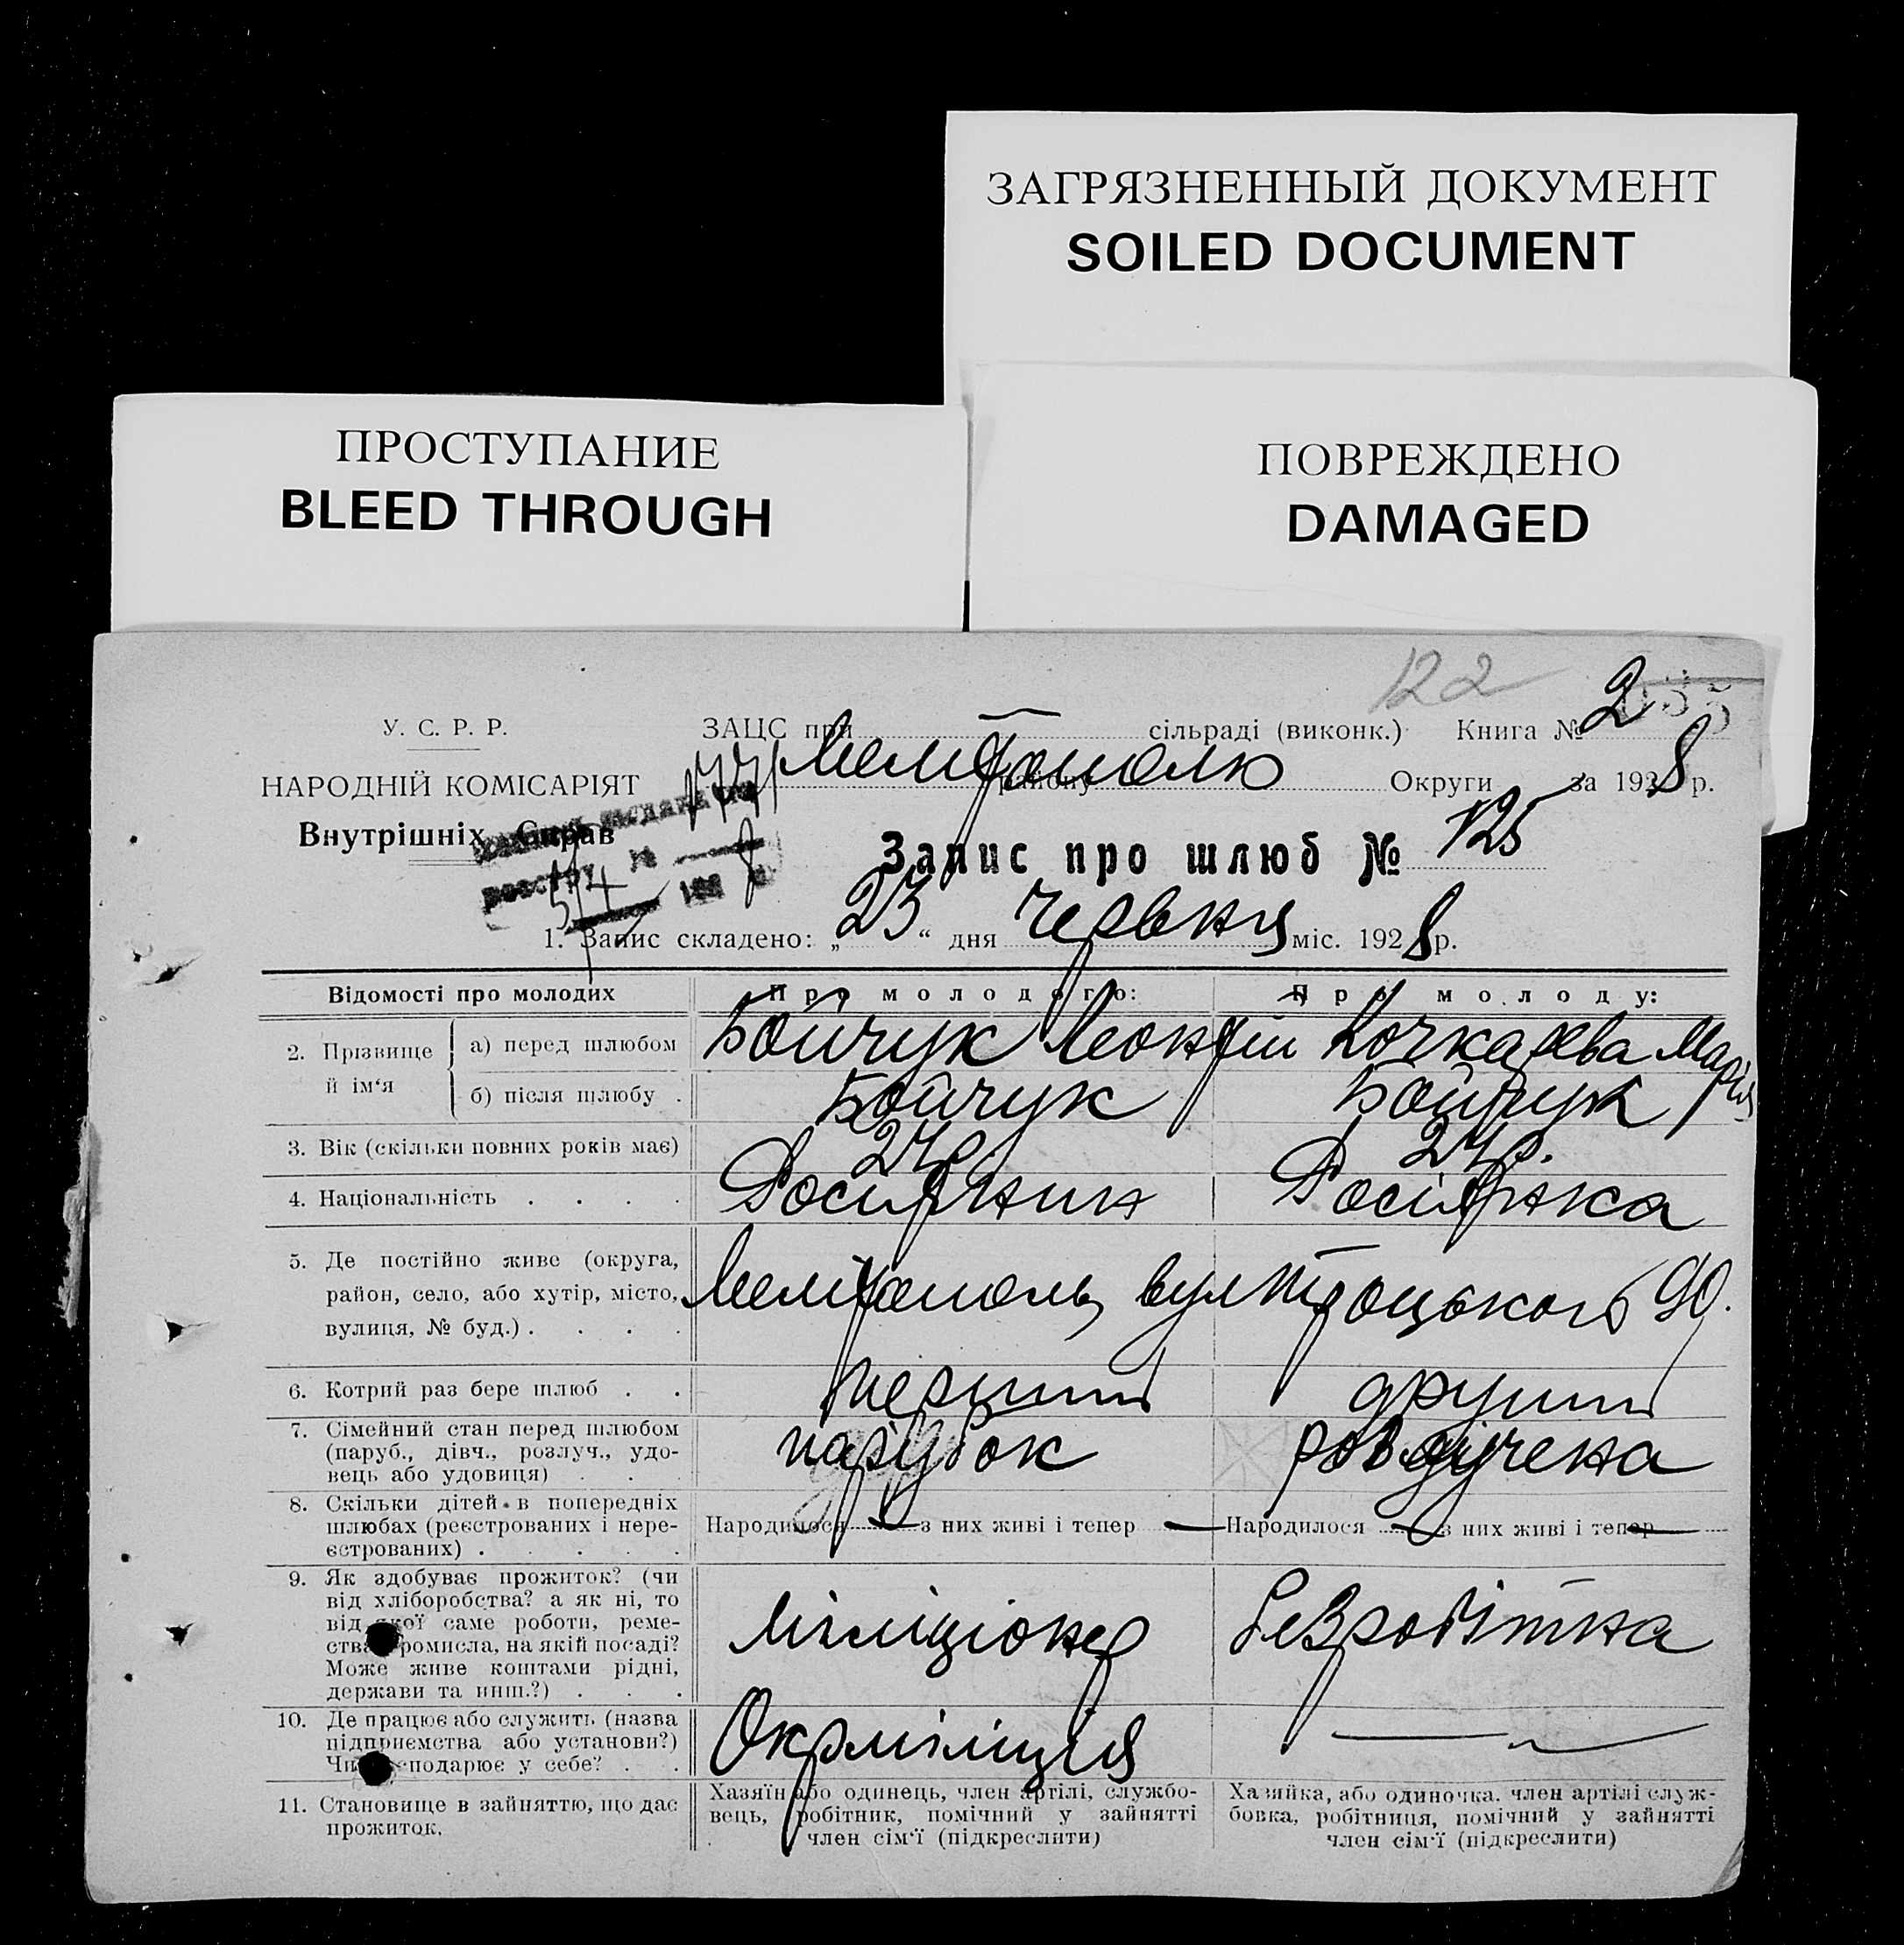 ЗАГРЯЗНЕННЫЙ ДОКУМЕНТ
SOILED DOCUMENT
ПРОСТУПАНИЕ
BLEED THROUGH
ПОВРЕЖДЕНО
DAMAGED
122
У. С. Р. Р.
ЗАЦС при сільраді (виконк.) Книга № 2
НАРОДНІЙ КОМІСАРІЯТ
Мелітополю району Округи за 1928 р.
Внутрішніх Справ
Запис про шлюб № 125
1. Запис складено: „23“ дня червня міс. 1928 р.
Відомості про молодих Про молодого: Про молоду:
2. Прізвище й ім'я а) перед шлюбом Бойчук Леонтій Кочкарева Марія
б) після шлюбу . Бойчук Бойчук
3. Вік (скільки повних років має) 24р. 24р.
4. Національність . . . . Росіянин Росіянка
5. Де постійно живе (округа,
район, село, або хутір, місто, Мелітополь вул Троцького 90.
вулиця, № буд.) . . . .
6. Котрий раз бере шлюб . . перший другий
7. Сімейний стан перед шлюбом
(паруб., дівч., розлуч., удо- парубок розлучена
вець або удовиця) . . .
8. Скільки дітей в попередніх
шлюбах (реєстрованих і нере- Народилося — з них живі і тепер — Народилося — з них живі і тепер —
єстрованих) . . . . .
9. Як здобуває прожиток? (чи
від хліборобства? а як ні, то
від якої саме роботи, реме-
ства, промисла, на якій посаді? Міліціонер Безробітна
Може живе коштами рідні,
держави та инш.?) . . .
10. Де працює або служить (назва
підприємства або установи?) Окрміліція —
Чи господарює у себе? . .
11. Становище в зайняттю, що дає
прожиток.
Хазяїн або одинець, член артілі, службо-
вець, робітник, помічний у зайнятті
член сім'ї (підкреслити)
Хазяйка, або одиночка, член артілі служ-
бовка, робітниця, помічний у зайнятті
член сім'ї (підкреслити)